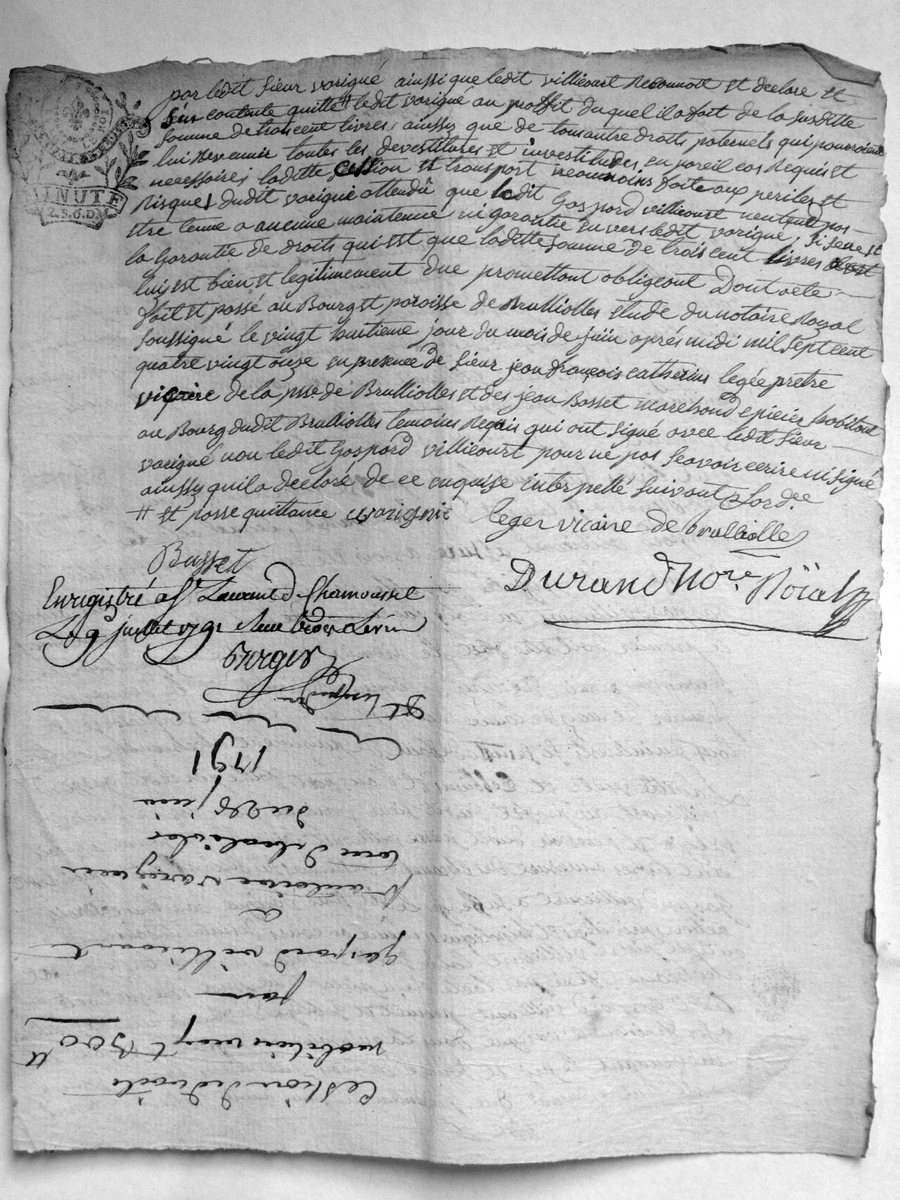 par ledit sieur varigné ainssi que ledit villicourt Reconnoit et declare et
s'en contente quitte # ledit varigné au proffit duquel il a fait de la surditte
somme de trois cent livres, ainssy que de tous autre droits paternels qui pourroient
lui Revenir toutes les devestitures et investitures en pareil cas Requis et
necessaire, ladette cession et transport neamoins faite aux perilles et
Risques dudit varigné attendu que ledit Gaspard villicourt n'entend pas
etre tenue a aucune maintenue ni garantie envers ledit varigné
la Garantie de droits qui est que laditte somme de trois cent livres
lui est bien et legitimement due promettant obligeant Dont acte
fait et passé au Bourg et paroisse de Brulliolles Etude du notaire Royal
soussigné le vingt huitieme jour du mois de juin après midi mil sept cent
quatre vingt onze en presence de sieur jean françois catherins legée pretre
vicaire de la psse de Brulliolles et des jean Bosset marchand epicier habitant
au Bourg dudit Brulliolles temoins Requis qui ont signé avec ledit sieur
varigné non ledit Gaspard villicourt pour ne pas sçavoir ecrire ni signé
ainssy qu'il a declaré de ce enquise interpellé suivant l'ordce
# et passe quittance varignié leger vicaire de brulliolle
Busset
DURAND Nore Roïal
Enregistré a St Laurant d Chamousset
Le 9 juillet 1791
MINUTE
2.S.6.D
Cession de droits
mobiliers 300 tt
par
gaspard villicourt
a
antoine varignié
du 28 juin
1791